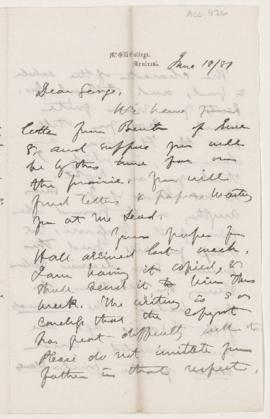 ACC 526
McGill College,
Montreal.
June 10/81
Dear George,
We have
letter from of June
8, and suppose you will
be by this time far on
the prairie. You will
find letters & papers waiting
you at
Your paper for
Hall arrived last week.
I am having it copied, &
shall send it to him this
week. The writing is so
careless that the copyist
has great difficulty with it
Please do not imitate your
father in that respect.